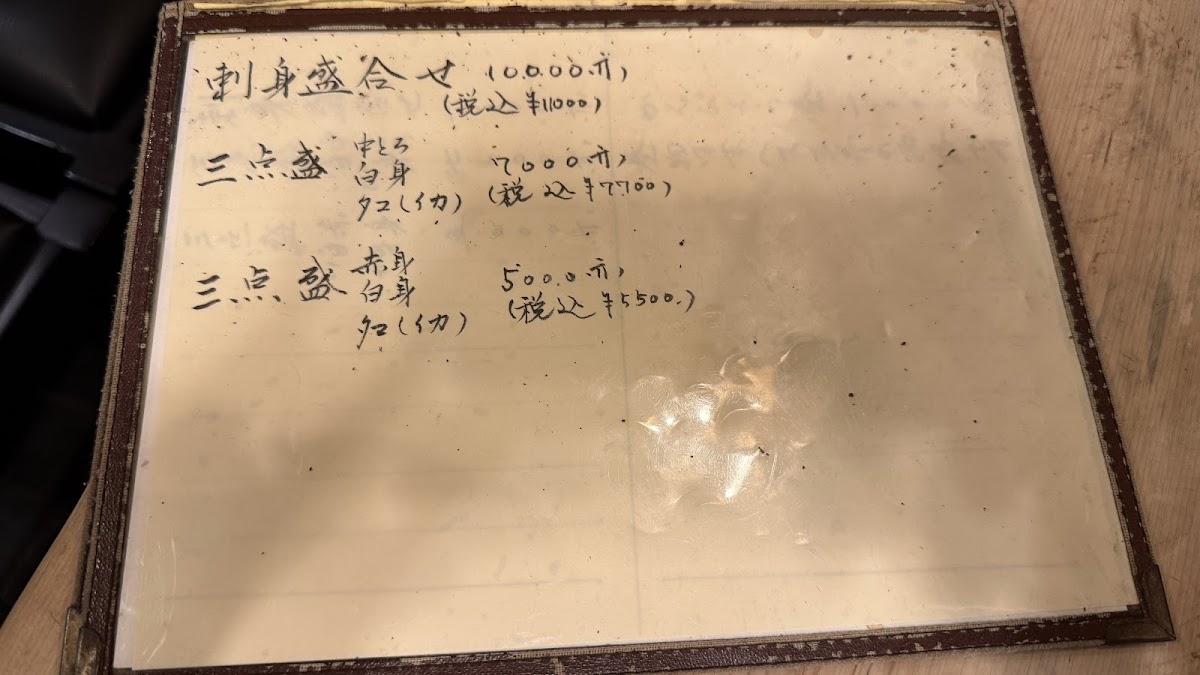 刺身盛合せ 10.000.円
(税込 ¥11000)
三点盛 中とろ 7000円
白身 (税込 ¥7700)
タコ(イカ)
三点盛 赤身 5000円
白身 (税込 ¥5500.)
タコ(イカ)